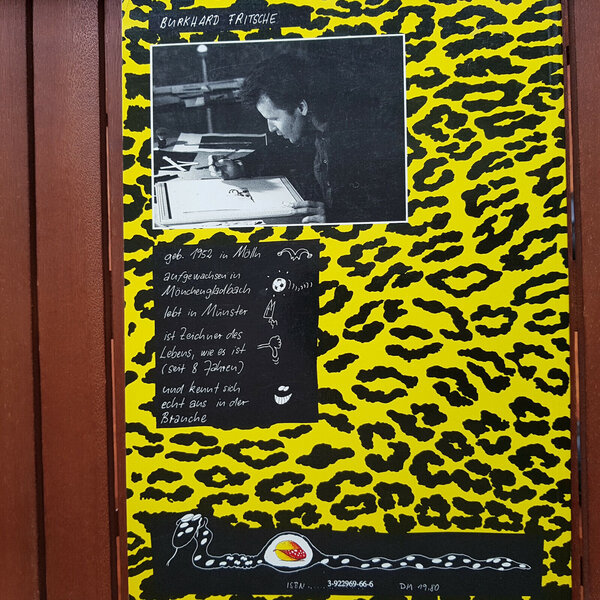 BURKHARD FRITSCHE
geb. 1952 in Mölln
aufgewachsen in
Mönchengladbach
lebt in Münster
ist Zeichner des
Lebens, wie es ist
(seit 8 Jahren)
und kennt sich
echt aus in der
Branche
ISBN ..... 3-922969-66-6 DM 19.80